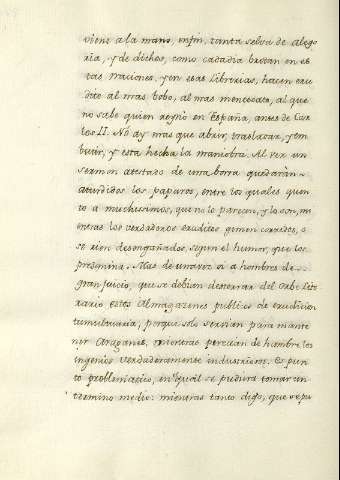 viene a la mano, enfin, tanta selva de alego
ria, y de dichos, como cadadia brotan en es
tas Naciones, y en esas Librerias, hacen eru
dito al mas bobo, al mas mencecato, al que
no sabe quien reynò en España, antes de Car
los II. No ay mas que abrir, trasladar, y em
butir, y està hecha la maniobra. Al ver un
sermon atestado de una borra quedaràn
aturdidos los paparos, entre los quales quen
to a muchissimos, que no lo parecen, y lo son, mi
entras los verdaderos eruditos gimen corridos, o
se rien desengañados, segun el humor, que los
predomina. Mas de una vez oì a hombres de
gran juicio, que se debian desterrar del Orbe Lite
rario estos Almagazenes publicos de erudicion
tumultuaria, porque solo servian para mante
ner Araganes, mientras perecian de hambre los
ingenios verdaderamente industriosos. Es pun
to problematico, en el qual se pudiera tomar un
termino medio: mientras tanto digo, que se pu